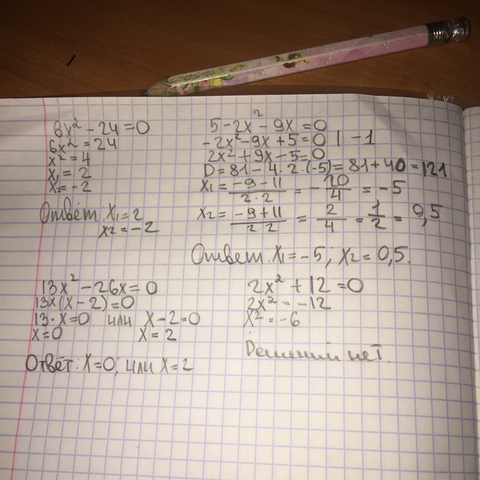 6x² - 24 = 0
6x² = 24
x² = 4
x₁ = 2
x₂ = -2
Ответ: x₁ = 2
x₂ = -2
5 - 2x² - 9x = 0
-2x² - 9x + 5 = 0 | · -1
2x² + 9x - 5 = 0
D = 81 - 4 · 2 · (-5) = 81 + 40 = 121
x₁ = (-9 - 11)/(2 · 2) = -20/4 = -5
x₂ = (-9 + 11)/(2 · 2) = 2/4 = 1/2 = 0,5
Ответ: x₁ = -5; x₂ = 0,5.
13x² - 26x = 0
13x(x - 2) = 0
13 · x = 0 или x - 2 = 0
x = 0 x = 2
Ответ: x = 0; или x = 2
2x² + 12 = 0
2x² = -12
x² = -6
Решений нет.